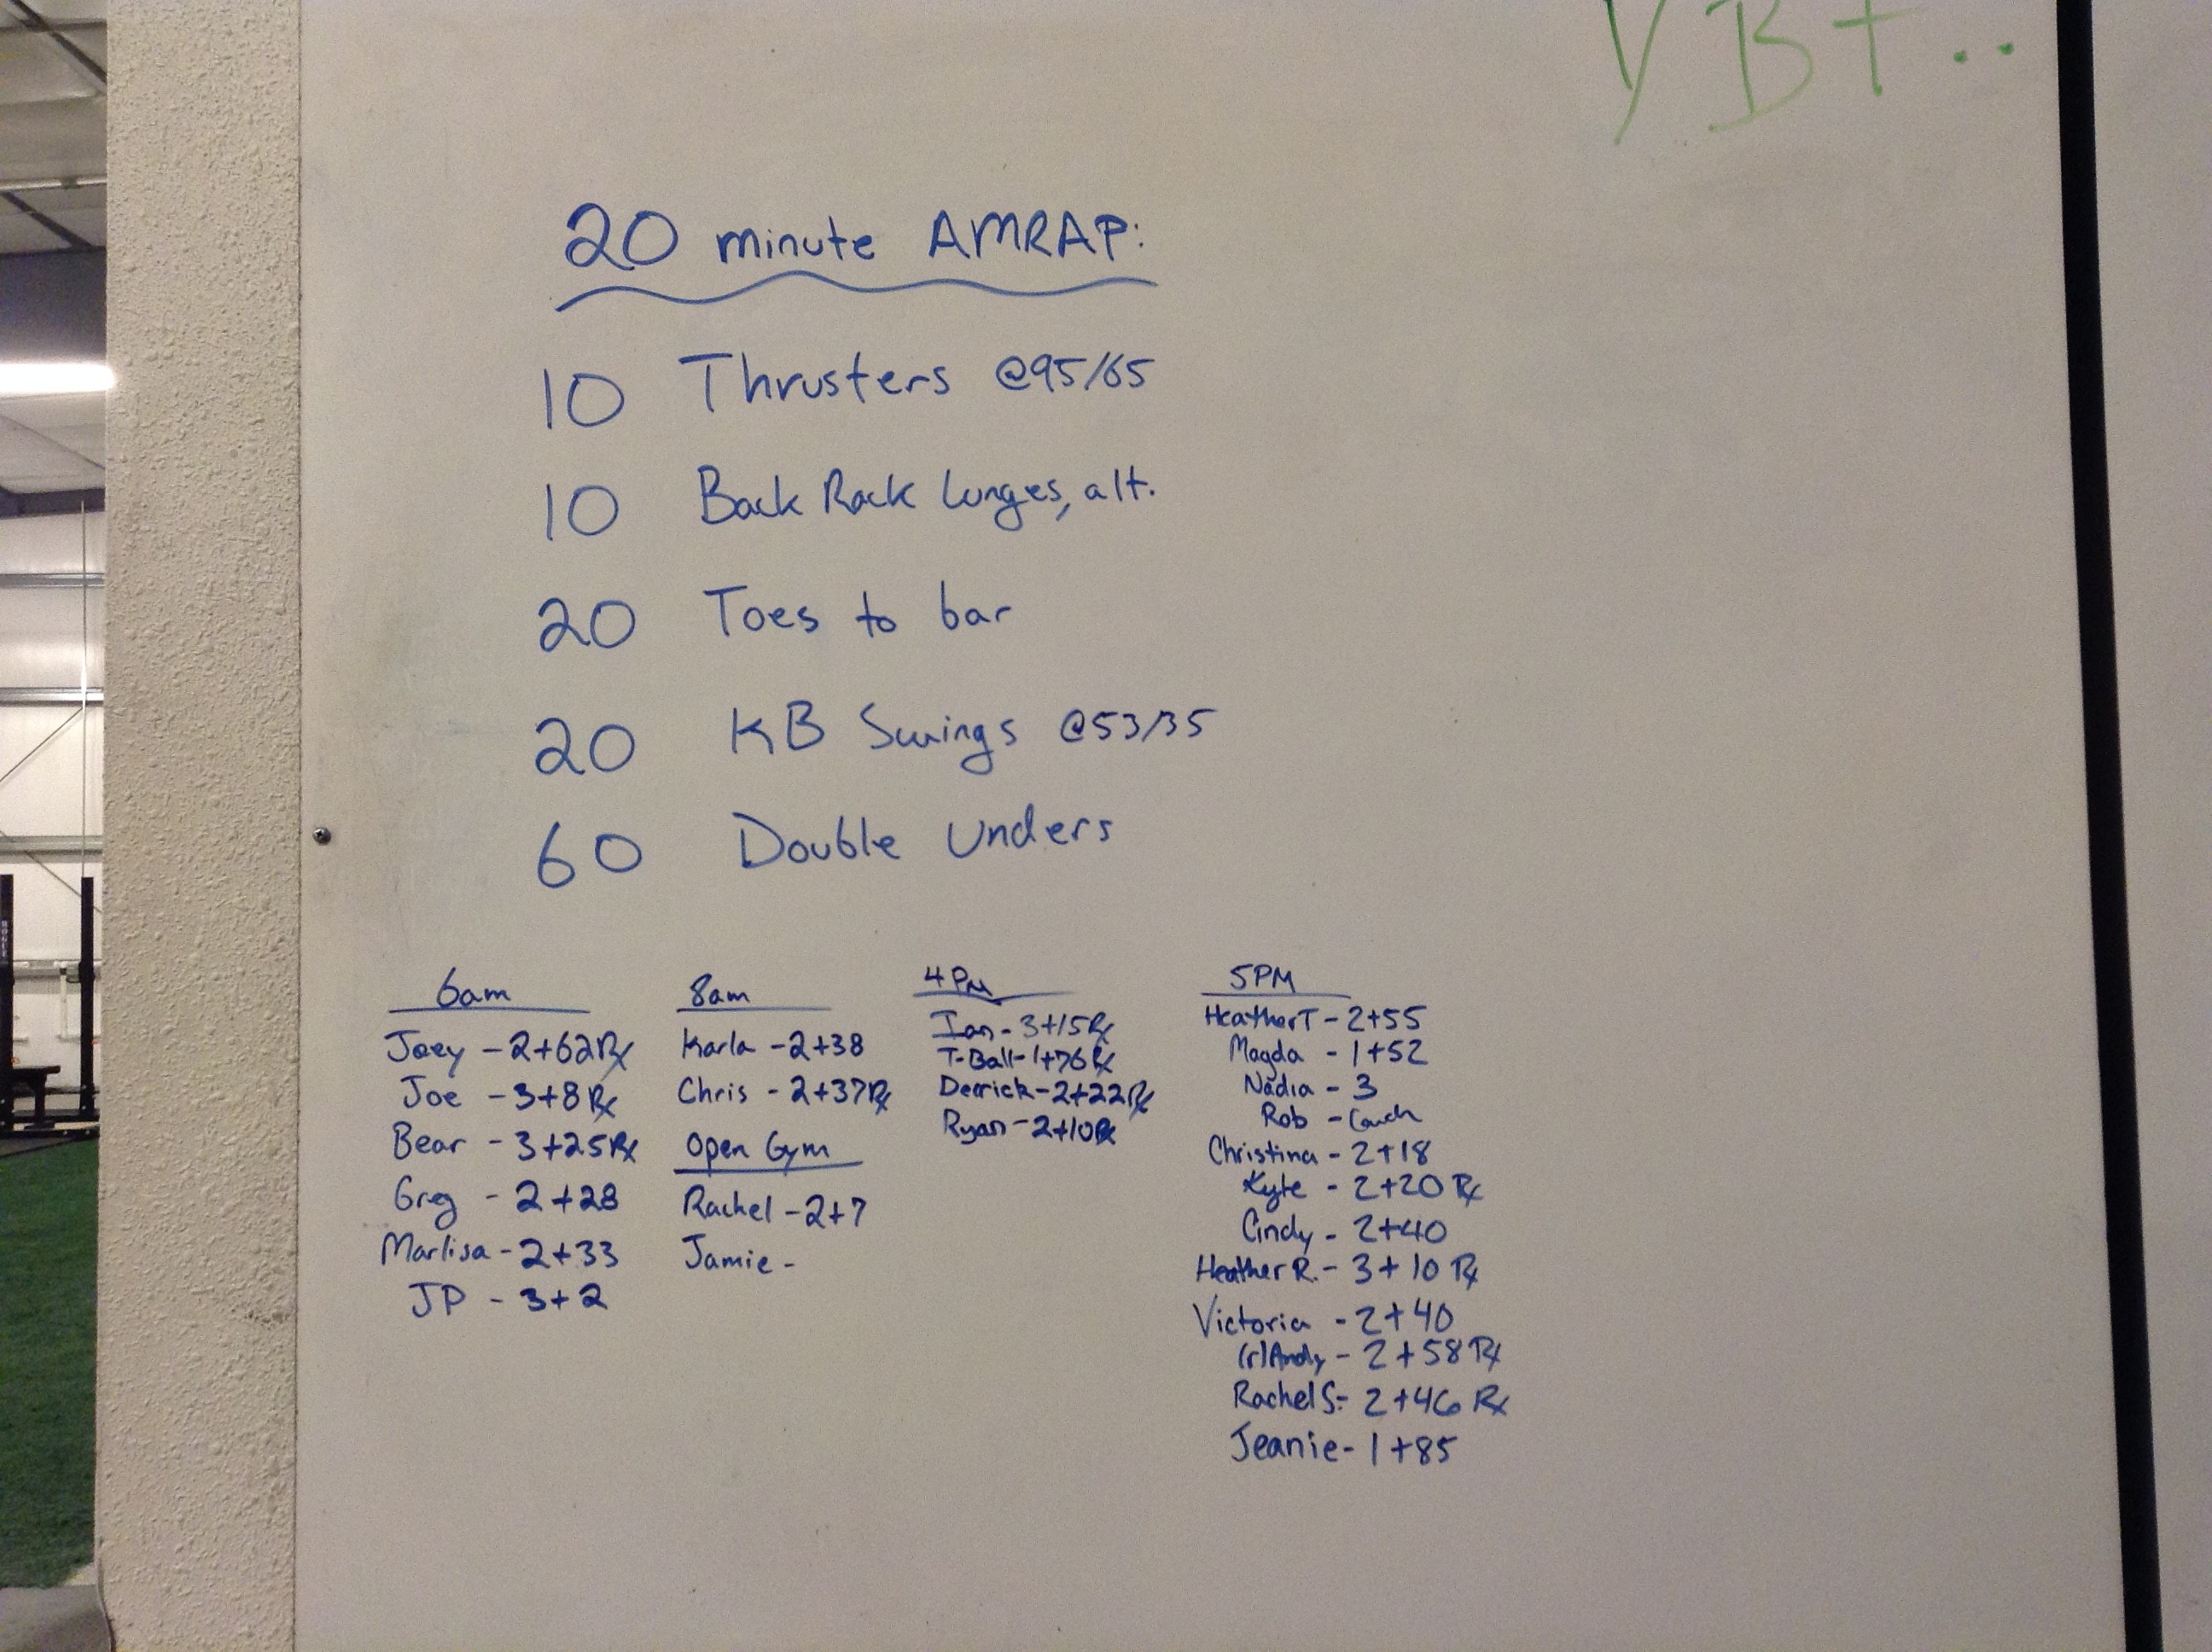 VB+..
20 minute AMRAP:
10 Thrusters @95/65
10 Back Rack Lunges, alt.
20 Toes to bar
20 KB Swings @53/35
60 Double Unders
6am
Joey - 2+62 Rx
Joe - 3+8 Rx
Bear - 3+25 Rx
Greg - 2+28
Marlisa - 2+33
JP - 3+2
8am
Karla - 2+38
Chris - 2+37 Rx
Open Gym
Rachel - 2+7
Jamie -
4PM
Ian - 3+15 Rx
T-Ball - 1+76 Rx
Derrick - 2+22 Rx
Ryan - 2+10 Rx
5PM
Heather T - 2+55
Magda - 1+52
Nadia - 3
Rob -
Christina - 2+18
Kyle - 2+20 Rx
Cindy - 2+40
Heather R. - 3+10 Rx
Victoria - 2+40
(r)Andy - 2+58 Rx
Rachel S. - 2+46 Rx
Jeanie - 1+85